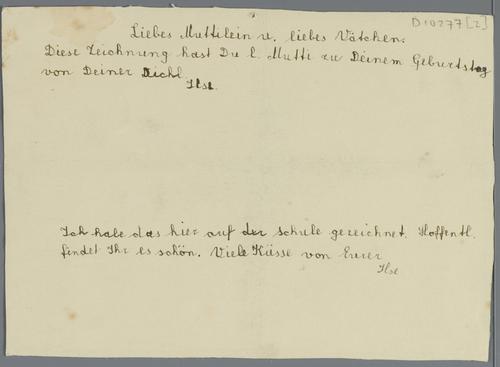 D10277[2]
Liebes Muttilein u. liebes Vätchen.
Diese Zeichnung hast Du l. Mutti zu Deinem Geburtstag
von Deiner
Ilse.
Ich habe das hier auf der Schule gezeichnet. Hoffentl.
findet Ihr es schön. Viele Küsse von Eurer
Ilse